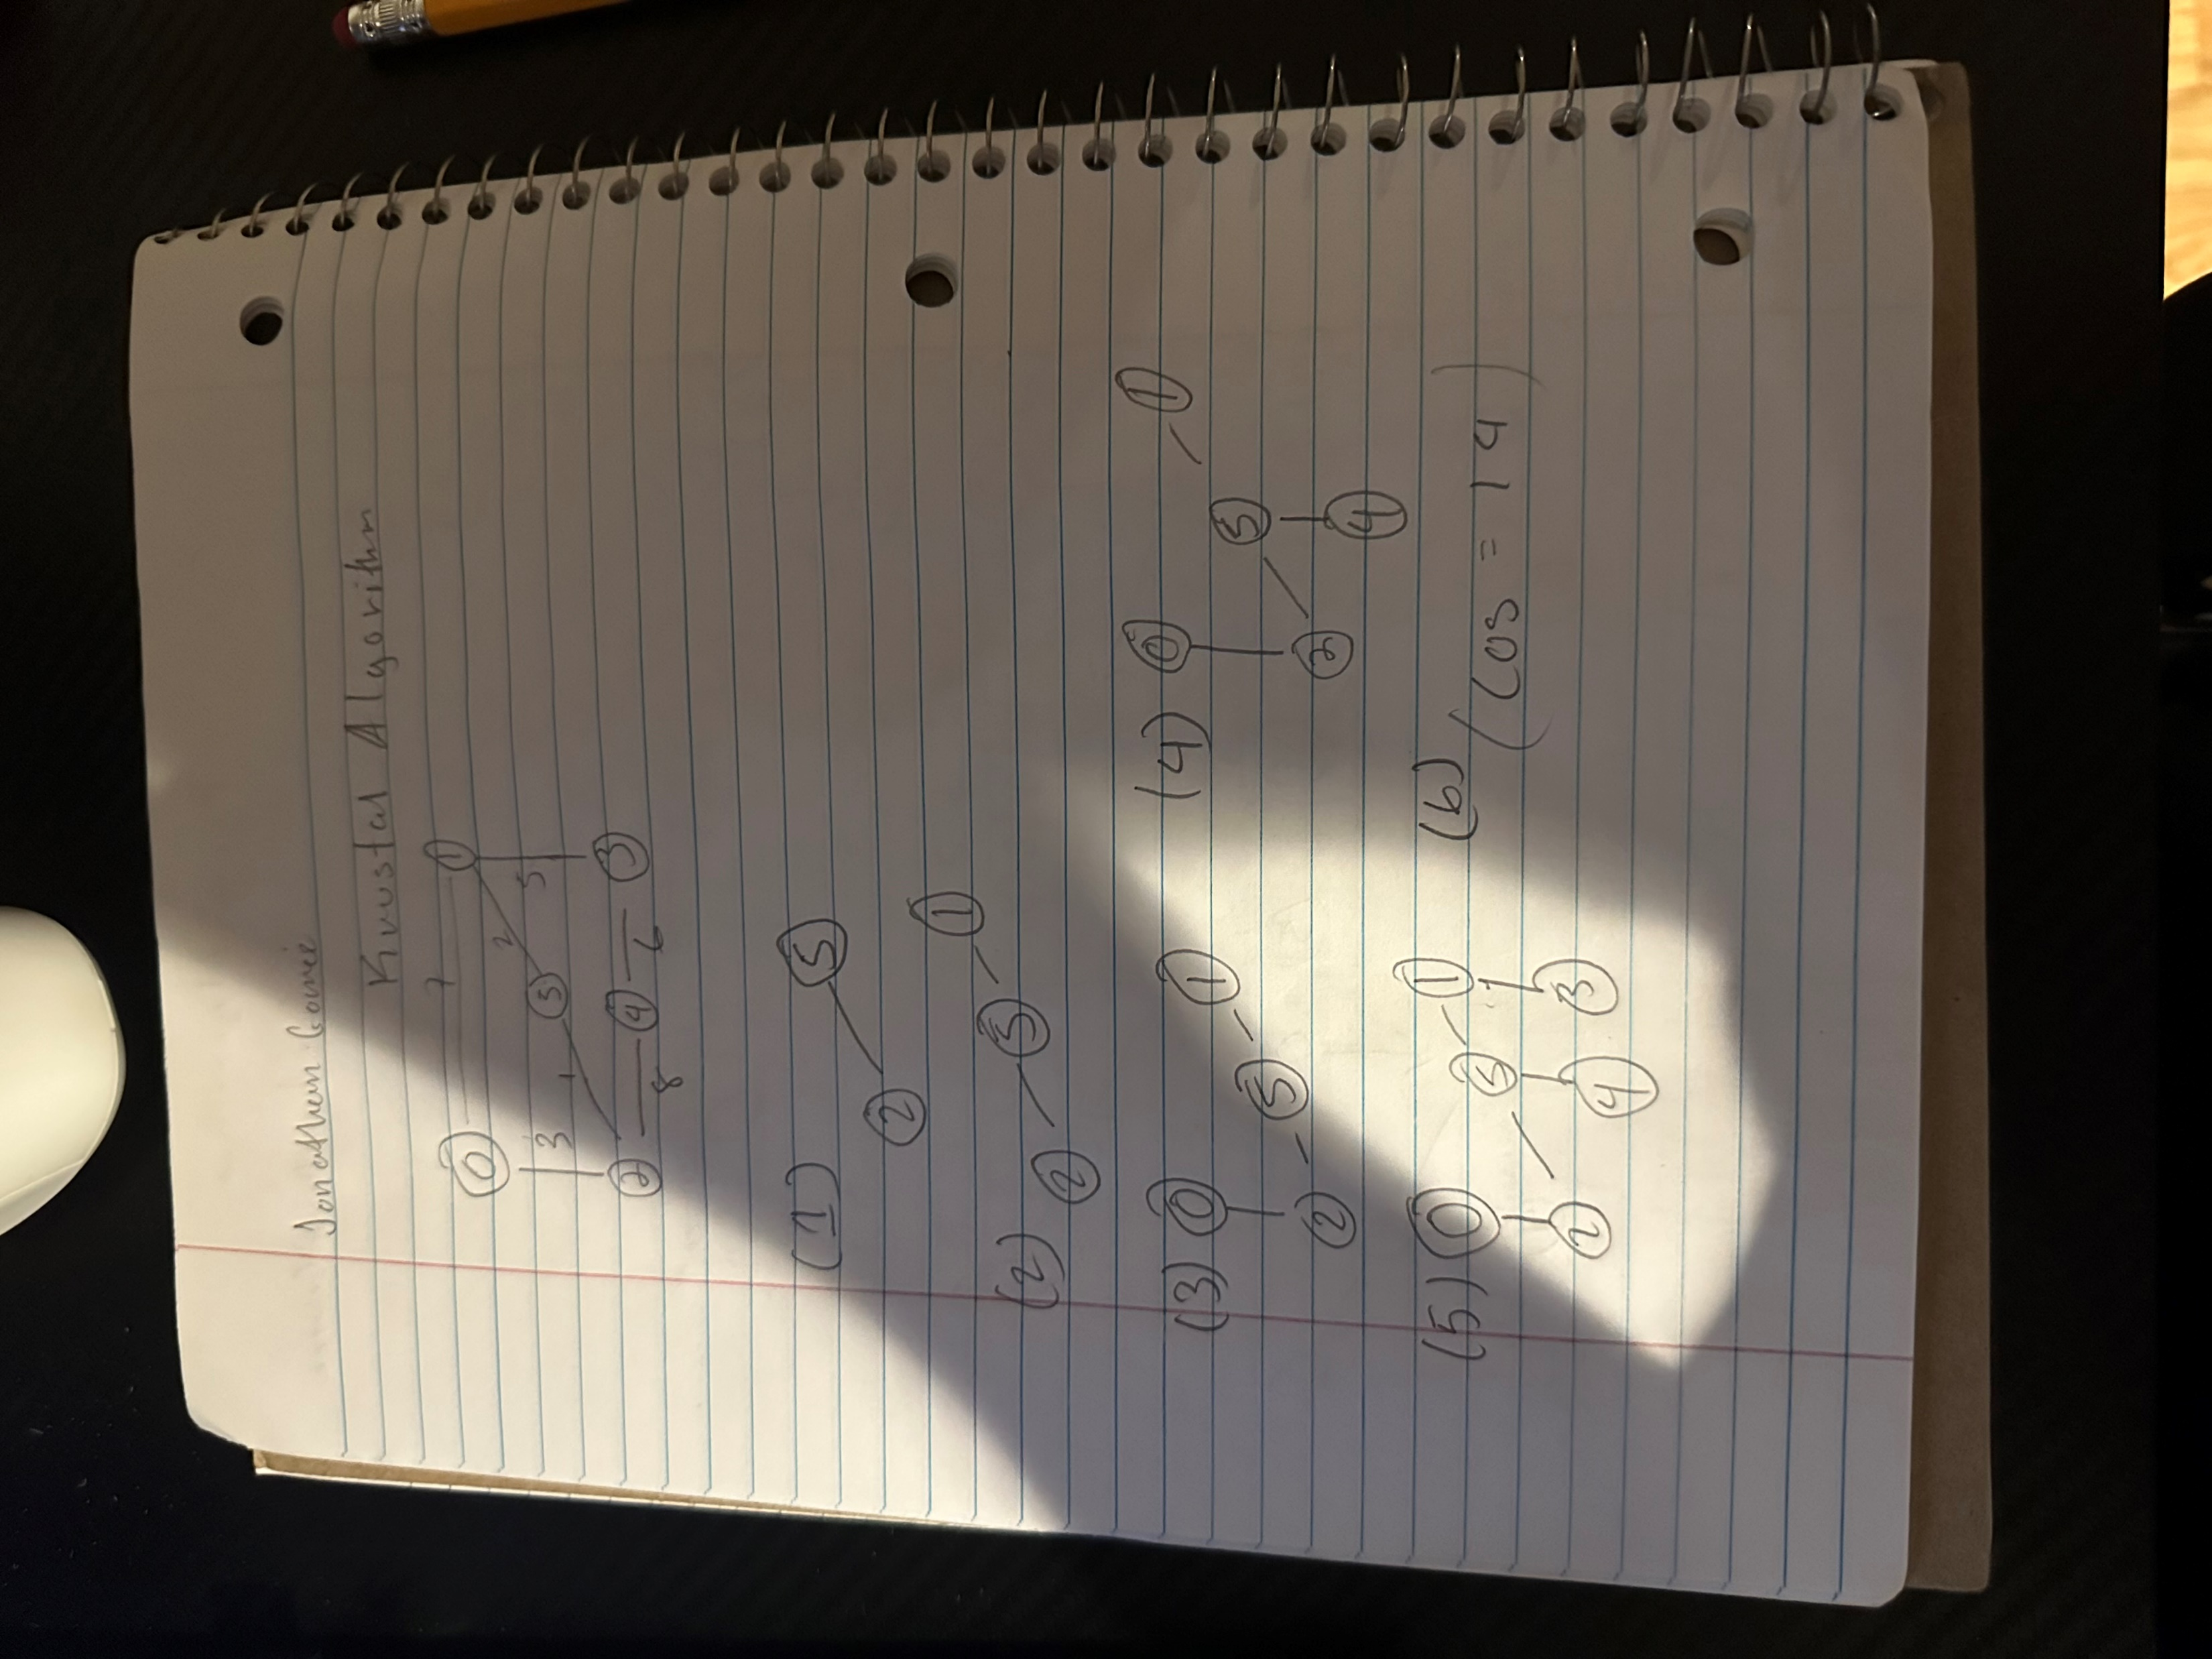 Jonathan
Kruustal Algorithm
0 7 1
3 1 5 2 5
2 8 4 6 3
(1) 2 5
(2) 2 5 1
(3) 0 2 5 1
(4) 0 2 5 4 1
(5) 0 2 5 4 1 3
(6) (cos = 14)